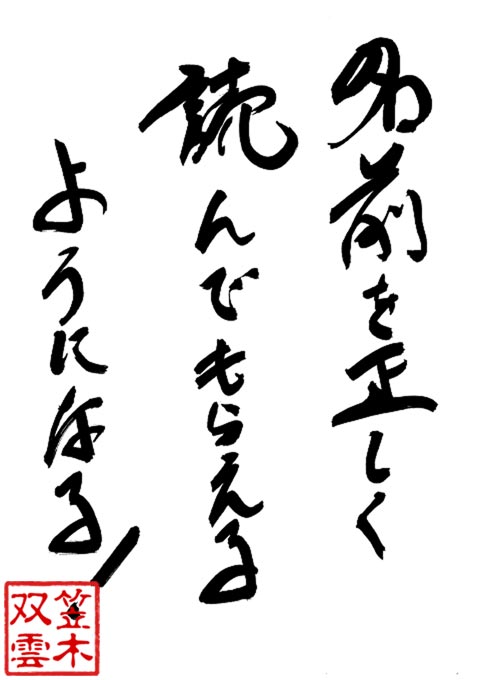 名前を正しく
読んでもらえる
ように活る!
笠木
双雲